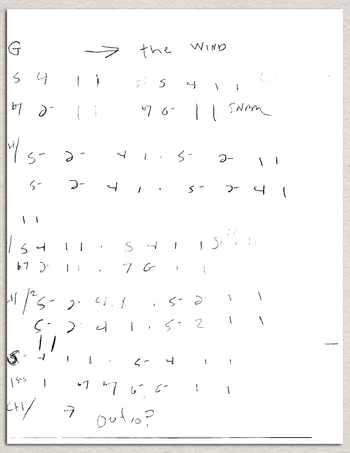 G → the WIND
5 4 1 1 5 4 1 1
b7 2- 1 1 b7 6- 1 1
5- 2- 4 1 . 5- 2- 1 1
5- 2- 4 1 . 5- 2- 4 1
1 1
5 4 1 1 . 5 4 1 1
b7 2- 1 1 . 7 6 1 1
5- 2- 4 . 1 . 5- 2 1 1
5- 2- 4 1 . 5- 2 1 1
11
5- 4 1 1 . 5- 4 1 1
1 b7 b7 6- 6- 1 1
CH/ → Outro?